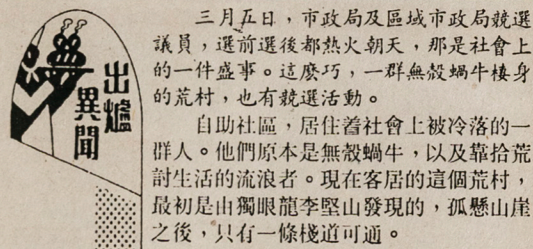 出爐
異聞
三月五日，市政局及區域市政局競選
議員，選前選後都熱火朝天，那是社會上
的一件盛事。這麼巧，一群無殼蝸牛棲身
的荒村，也有競選活動。
自助社區，居住着社會上被冷落的一
群人。他們原本是無殼蝸牛，以及靠拾荒
討生活的流浪者。現在客居的這個荒村，
最初是由獨眼龍李堅山發現的，孤懸山崖
之後，只有一條棧道可通。